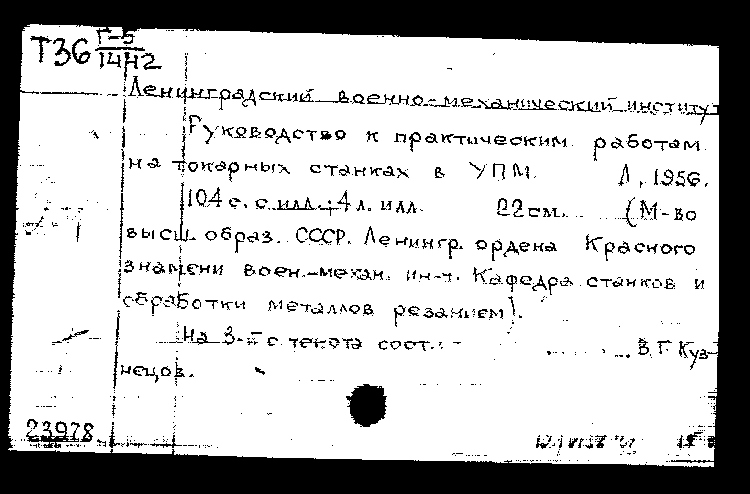 Т36 Г-5
1442
Ленинградский военно-механический институт
Руководство к практическим работам
на токарных станках в УПМ. Л, 1956.
104 с. с илл.; 4 л. илл. 22 см. (М-во
высш. образ. СССР. Ленингр. ордена Красного
знамени воен.-механ. ин-т. Кафедра станков и
обработки металлов резанием).
На 3-й с текста сост.: В. Г. Куз-
нецов.
23978